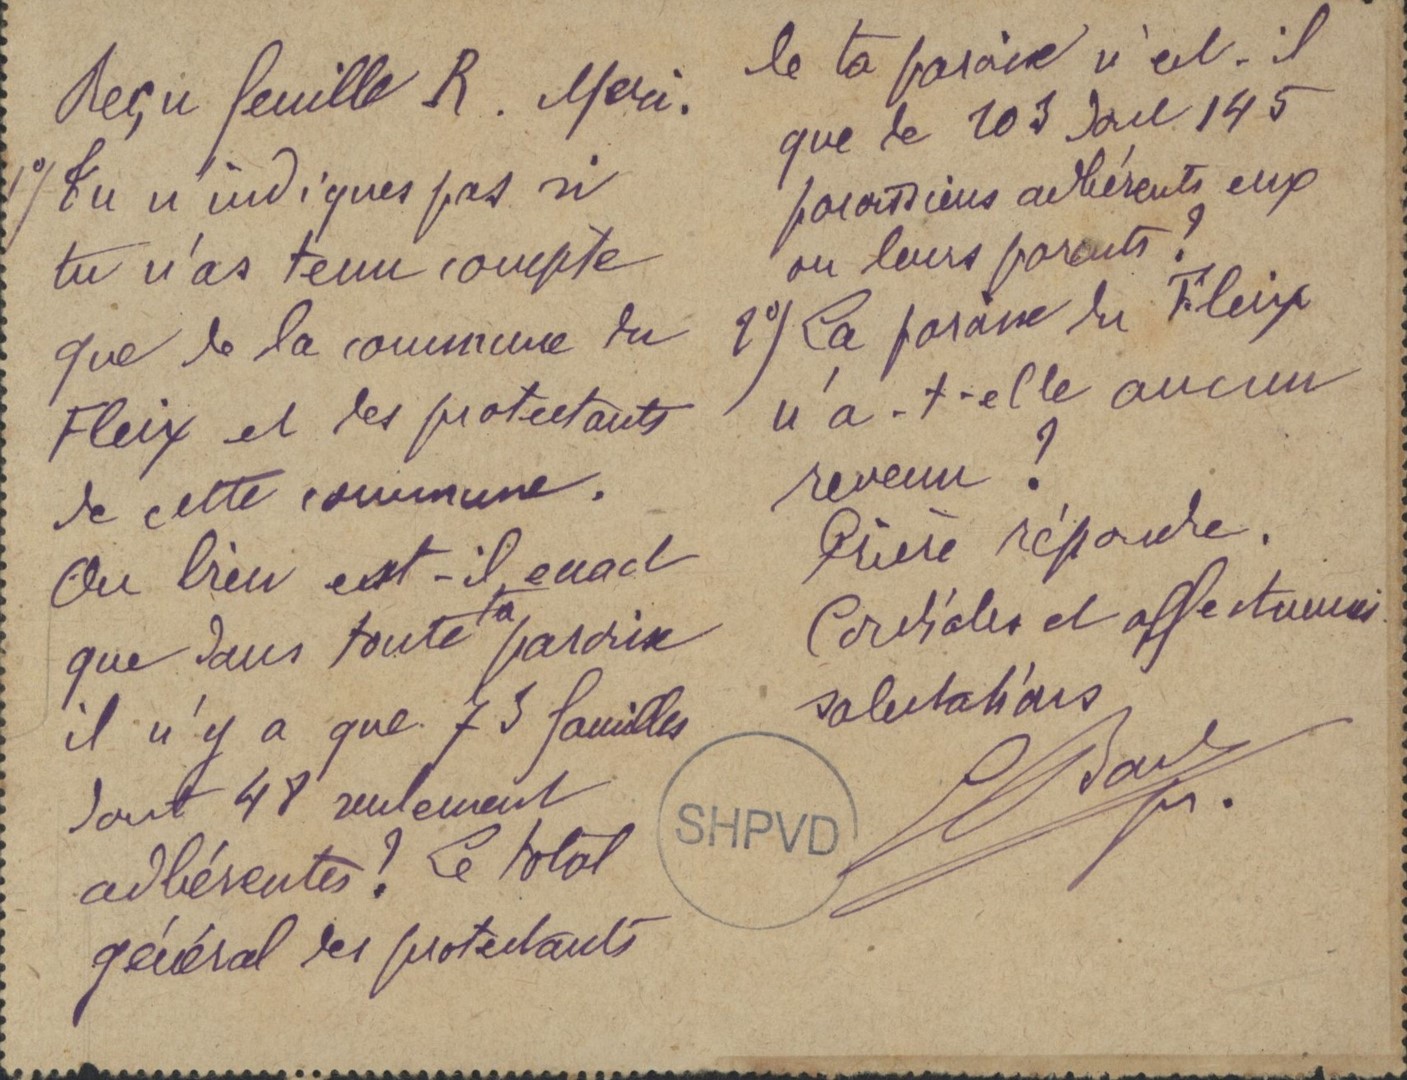 Reçu feuille R. Merci.
1°/ Tu n'indiques pas si
tu n'as tenu compte
que de la commune du
Fleix et des protestants
de cette commune.
Ou bien est-il exact
que dans toute ta paroisse
il n'y a que 73 familles
dont 48 seulement
adhérentes? Le total
général des protestants
de ta paroisse n'est-il
que de 203 dont 145
paroissiens adhérents eux
ou leurs parents?
2°/ La paroisse du Fleix
n'a-t-elle aucun
revenu?
Prière répondre.
Cordiales et affectueuses
salutations
SHPVD